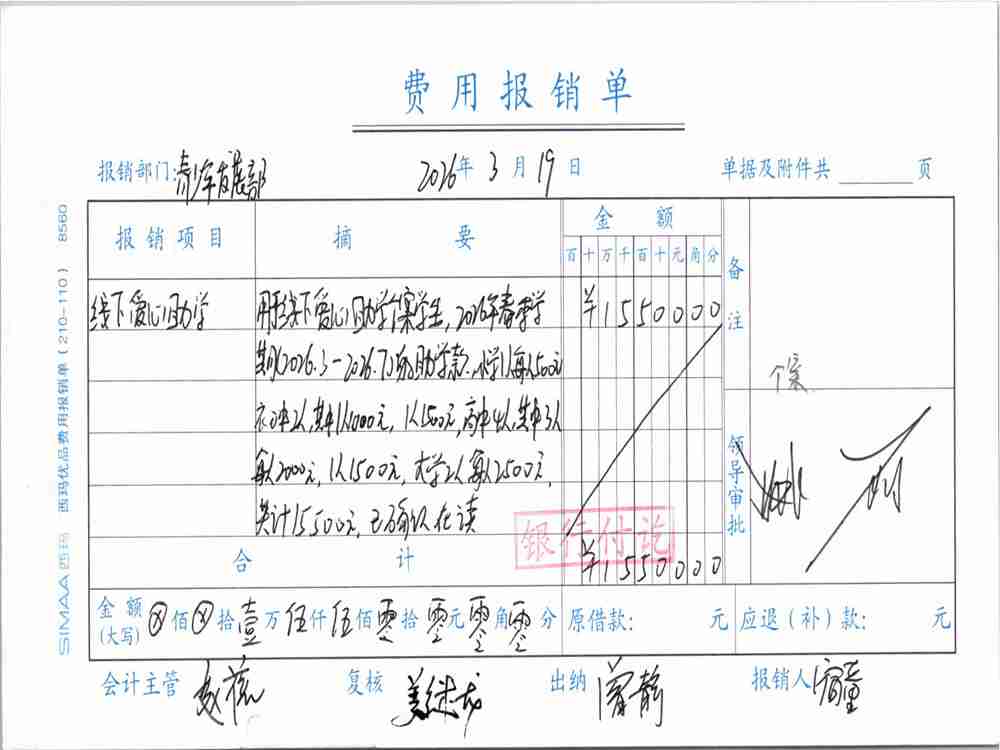 费用报销单
报销部门:青少年发展部 2026年3月19日 单据及附件共 页
报销项目 摘要 金额 备注
百十万千百十元角分
线下爱心助学 用于线下爱心助学个案学生,2026年春季学 ¥1550000
期(2026.3-2026.7)的助学款.小学1人每人500元
个案
初中2人,其中1人1000元,1人1500元,高中4人,其中3人
每人2000元,1人1500元,大学2人每人2500元,
共计15500元,已确认在读
领导审批
银行付讫
合计 ¥1550000
金额(大写) ⊗佰⊗拾壹万伍仟伍佰零拾零元零角零分 原借款: 元 应退(补)款: 元
会计主管 复核 出纳 曾静 报销人
SIMAA西玛 西玛优品费用报销单(210-110) 8560